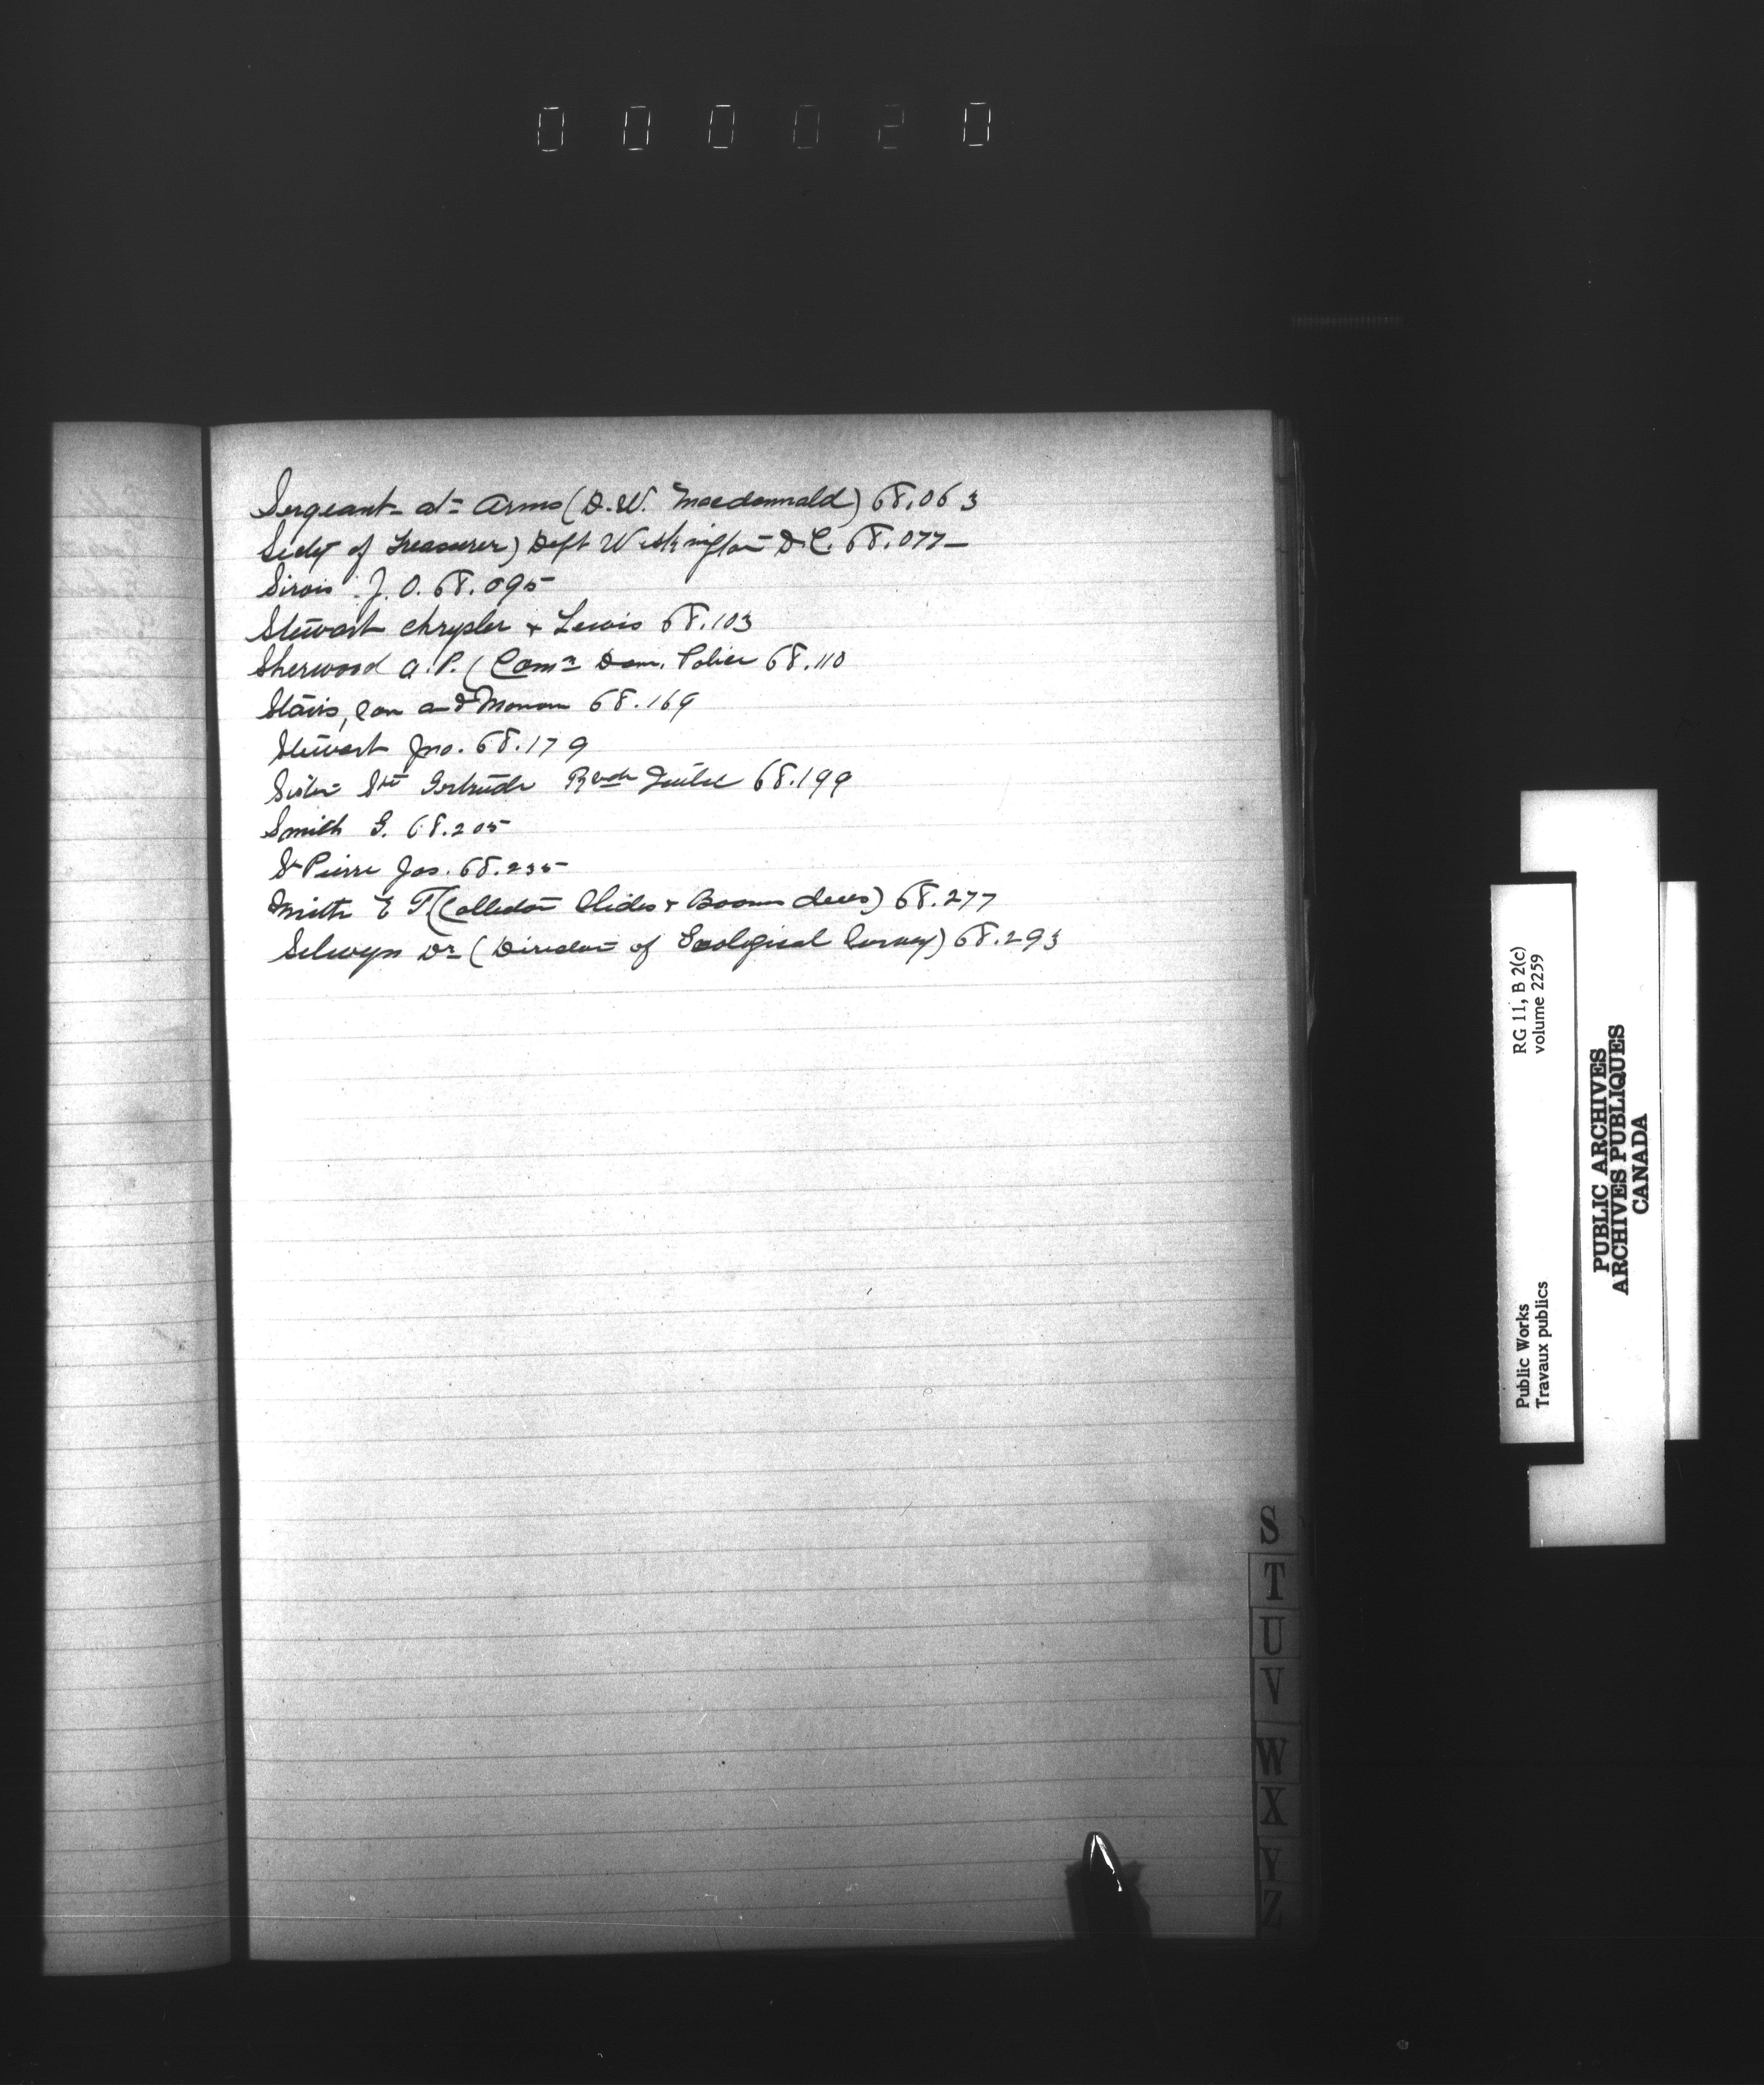 000020
Sergeant-at-Arms (D.W. Macdonnald) 68,063
Secty of Treasurer) Dept Washington D.C. 68.077
Sirois J. O. 68.095
Stewart Chrysler & Lewis 68.103
Sherwood A.P. (Comr Dom. Police 68.110
Stairs, Son and Morrow 68.169
Stewart Jno. 68.179
Sister Ste Gertrude 68.199
Smith G. 68.205
St Pierre Jos. 68.235
Smith E T (Collector Slides & Booms dues) 68.277
Selwyn Dr (Director of Geological Survey) 68.293
S
T
U
V
W
X
Y
Z
RG 11, B 2(c)
volume 2259
Public Works
Travaux publics
PUBLIC ARCHIVES
ARCHIVES PUBLIQUES
CANADA